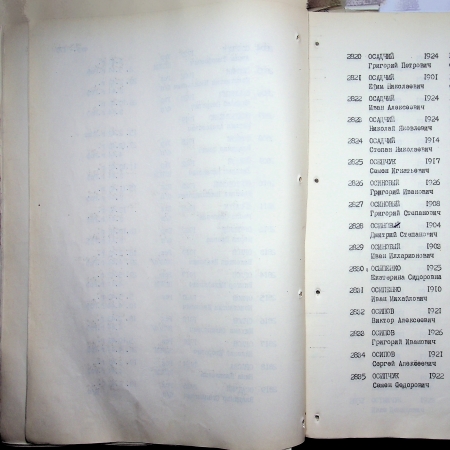 2820 ОСАДЧИЙ 1924
Григорий Петрович
2821 ОСАДЧИЙ 1901
Юрим Николаевич
2822 ОСАДЧИЙ 1924
Иван Алексеевич
2823 ОСАДЧИЙ 1924
Николай Яковлевич
2824 ОСАДЧИЙ 1914
Степан Николаевич
2825 ОСИПЧУК 1917
Семен Игнатьевич
2826 ОСИНОВЫЙ 1926
Григорий Иванович
2827 ОСИНОВЫЙ 1908
Григорий Степанович
2828 ОСИНОВЫЙ 1904
Дмитрий Степанович
2829 ОСИНОВЫЙ 1903
Иван Илларионович
2830 ОСИПЕНКО 1925
Екатерина Сидоровна
2831 ОСИПЕНКО 1910
Иван Михайлович
2832 ОСИПОВ 1921
Виктор Алексеевич
2833 ОСИПОВ 1926
Григорий Иванович
2834 ОСИПОВ 1921
Сергей Алексеевич
2835 ОСИПЧУК 1922
Семен Федорович